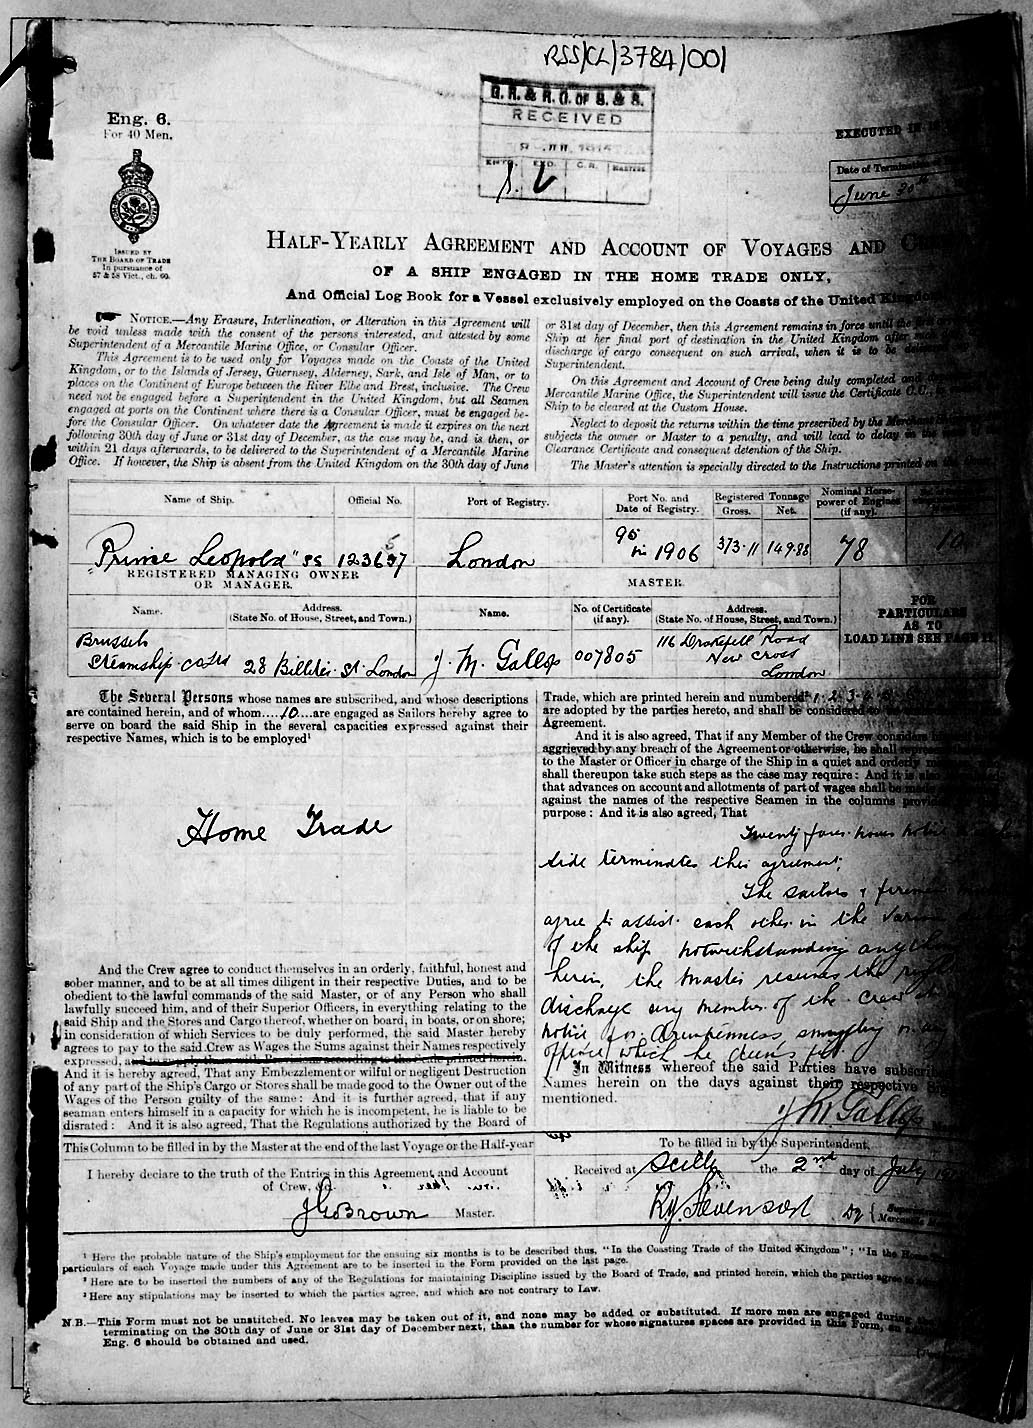 RSS/CL/3784/001
G.R. & R.O. OF S. & S.
RECEIVED
Eng. 6.
For 40 Men.
ISSUED BY
THE BOARD OF TRADE
In pursuance of
57 & 58 Vict., ch. 60.
EXECUTED IN
Date of Termination
June 30th
HALF-YEARLY AGREEMENT AND ACCOUNT OF VOYAGES AND
OF A SHIP ENGAGED IN THE HOME TRADE ONLY,
And Official Log Book for a Vessel exclusively employed on the Coasts of the United Kingdom
NOTICE.—Any Erasure, Interlineation, or Alteration in this Agreement will
be void unless made with the consent of the persons interested, and attested by some
Superintendent of a Mercantile Marine Office, or Consular Officer.
This Agreement is to be used only for Voyages made on the Coasts of the United
Kingdom, or to the Islands of Jersey, Guernsey, Alderney, Sark, and Isle of Man, or to
places on the Continent of Europe between the River Elbe and Brest, inclusive. The Crew
need not be engaged before a Superintendent in the United Kingdom, but all Seamen
engaged at ports on the Continent where there is a Consular Officer, must be engaged be-
fore the Consular Officer. On whatever date the Agreement is made it expires on the next
following 30th day of June or 31st day of December, as the case may be, and is then, or
within 21 days afterwards, to be delivered to the Superintendent of a Mercantile Marine
Office. If however, the Ship is absent from the United Kingdom on the 30th day of June
or 31st day of December, then this Agreement remains in force until the
Ship at her final port of destination in the United Kingdom after
discharge of cargo consequent on such arrival, when it is to be
Superintendent.
On this Agreement and Account of Crew being duly completed and
Mercantile Marine Office, the Superintendent will issue the Certificate C.C.
Ship to be cleared at the Custom House.
Neglect to deposit the returns within the time prescribed by the Merchant
subjects the owner or Master to a penalty, and will lead to delay in the
Clearance Certificate and consequent detention of the Ship.
The Master's attention is specially directed to the Instructions printed on the
Name of Ship. Official No. Port of Registry. Port No. and Date of Registry. Registered Tonnage Gross. Net. Nominal Horse-power of Engines (if any).
"Prince Leopold" ss 123657 London 95 in 1906 373.11 149.88 78 10
REGISTERED MANAGING OWNER
OR MANAGER.
MASTER.
Name. Address. (State No. of House, Street, and Town.) Name. No. of Certificate (if any). Address. (State No. of House, Street, and Town.)
FOR
PARTICULARS
AS TO
LOAD LINE SEE PAGE 11
Brussels
Steamship Co Ltd 28 Billiter St London J. M. Gallop 007805 116 Drakefell Road
New Cross
London
The Several Persons whose names are subscribed, and whose descriptions
are contained herein, and of whom....10....are engaged as Sailors hereby agree to
serve on board the said Ship in the several capacities expressed against their
respective Names, which is to be employed¹
Home Trade
And the Crew agree to conduct themselves in an orderly, faithful, honest and
sober manner, and to be at all times diligent in their respective Duties, and to be
obedient to the lawful commands of the said Master, or of any Person who shall
lawfully succeed him, and of their Superior Officers, in everything relating to the
said Ship and the Stores and Cargo thereof, whether on board, in boats, or on shore;
in consideration of which Services to be duly performed, the said Master hereby
agrees to pay to the said Crew as Wages the Sums against their Names respectively
expressed,
And it is hereby agreed, That any Embezzlement or wilful or negligent Destruction
of any part of the Ship's Cargo or Stores shall be made good to the Owner out of the
Wages of the Person guilty of the same: And it is further agreed, that if any
seaman enters himself in a capacity for which he is incompetent, he is liable to be
disrated: And it is also agreed, That the Regulations authorized by the Board of
Trade, which are printed herein and numbered² 1. 2. 3. 4. 5.
are adopted by the parties hereto, and shall be considered
Agreement.
And it is also agreed, That if any Member of the Crew considers
aggrieved by any breach of the Agreement or otherwise, he shall represent
to the Master or Officer in charge of the Ship in a quiet and orderly
shall thereupon take such steps as the case may require: And it is also
that advances on account and allotments of part of wages shall be made
against the names of the respective Seamen in the columns provided
purpose: And it is also agreed, That
Twenty four hours notice
side terminates this agreement.
The sailors & firemen
agree to assist each other in the various
of the ship notwithstanding anything
herein, the master reserves the right
discharge any member of the crew
notice for drunkenness, smuggling or any
offence which he deems fit.
In Witness whereof the said Parties have subscribed
Names herein on the days against their respective
mentioned.
J M Gallop
This Column to be filled in by the Master at the end of the last Voyage or the Half-year
I hereby declare to the truth of the Entries in this Agreement and Account
of Crew, &c.
J G Brown Master.
To be filled in by the Superintendent,
Received at Scilly the 2nd day of July
Dy
¹ Here the probable nature of the Ship's employment for the ensuing six months is to be described thus, "In the Coasting Trade of the United Kingdom"; "In the Home
particulars of each Voyage made under this Agreement are to be inserted in the Form provided on the last page.
² Here are to be inserted the numbers of any of the Regulations for maintaining Discipline issued by the Board of Trade, and printed herein, which the parties agree to
³ Here any stipulations may be inserted to which the parties agree, and which are not contrary to Law.
N.B.—This Form must not be unstitched. No leaves may be taken out of it, and none may be added or substituted. If more men are engaged during
terminating on the 30th day of June or 31st day of December next, than the number for whose signatures spaces are provided in this Form,
Eng. 6 should be obtained and used.